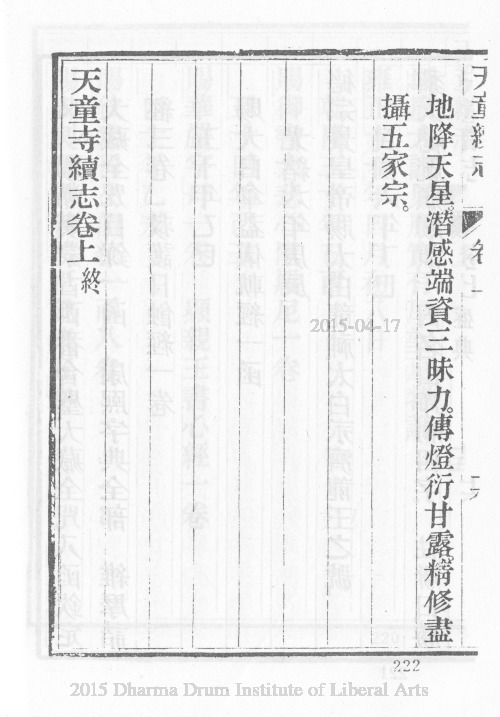 天童續志
卷上
地降天星。潛感端資三昧力。傳燈衍甘露。精修盡
攝五家宗。
天童寺續志卷上終
2015-04-17
222
2015 Dharma Drum Institute of Liberal Arts